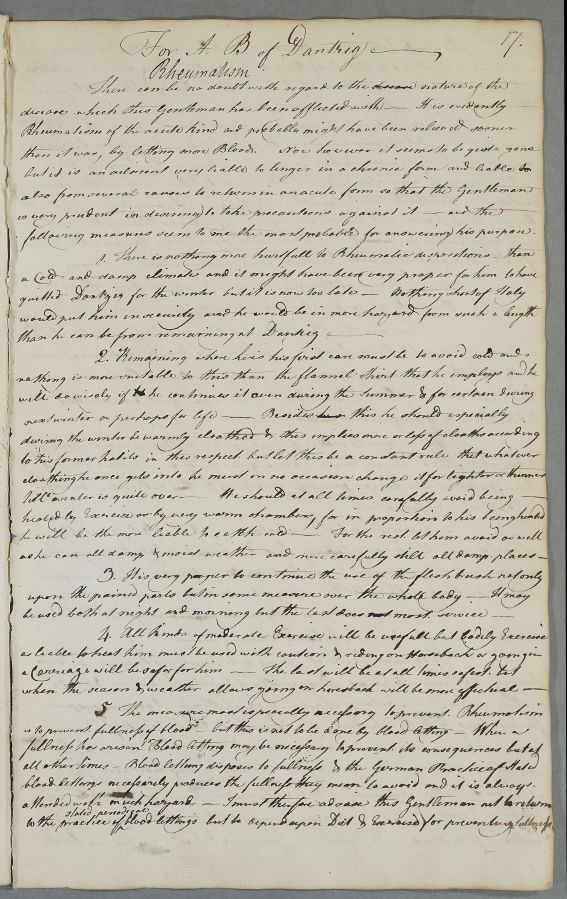 For A. B of Dantzig 17.
Rheumatism
There can be no doubt with regard to the disease nature of the
disease which this Gentleman has been afflicted with — It is evidently
Rheumatism of the acute kind and probably might have been relieved sooner
than it was, by letting more Blood. Now however it seems to be quite gone
but it is an ailment very liable to linger in a chronic form and liable to
also from several causes to return in an acute form so that the Gentleman
is very prudent in desiring to take precautions against it — and the
following measures seem to me the most probable for answering his purpose.
1. There is nothing more hurtfull to Rheumatic dispositions than
a Cold and damp climate and it might have been very proper for him to have
quitted Dantzig for the winter but it is now too late — Nothing short of Italy
would put him in security and he would be in more hazard from such a length
than he can be from remaining at Dantzig —
2. Remaining where he is his first care must be to avoid cold and
nothing is more suitable to this than the flannel Shirt that he employs and he
will do wisely if he continues it even during the Summer & for certain during
next winter or perhaps for life — Besides this he should especially
during the winter be warmly cloathed & this implies more or less of cloaths according
to his former habits in this respect but let this be a constant rule that whatever
cloathing he once gets into he must on no occasion change it for lighter or thinner
till winter is quite over — He should at all times carefully avoid being
heated by Exercise or by very warm chambers, for in proportion to his being heated
he will be the more liable to catch cold — For the rest let him avoid as well
as he can all damp & moist weather and more carefully still all damp places —
3. It is very proper to continue the use of the flesh brush not only
upon the pained parts but in some measure over the whole body — It may
be used both at night and morning but the last does most service —
4. All kinds of moderate Exercise will be usefull but Bodily Exercise
as liable to heat him must be used with caution & riding on Horseback or going in
a Carriage will be safer for him — The last will be at all times safest but
when the season & weather allows going on horseback will be more effectual —
5. The measure most especially necessary to prevent Rheumatism
is to prevent fullness of blood but this is not to be done by blood letting — When a
fullness has arisen Blood letting may be necessary to prevent its consequences but at
all other times Blood letting disposes to fullness & the German Practice of stated
blood lettings necessarily produces the fullness they mean to avoid and it is always
attended with much hazard — I must therefore advise this Gentleman not to return
to the stated periodical practice of blood lettings but to depend upon Diet & Exercise for preventing fullness